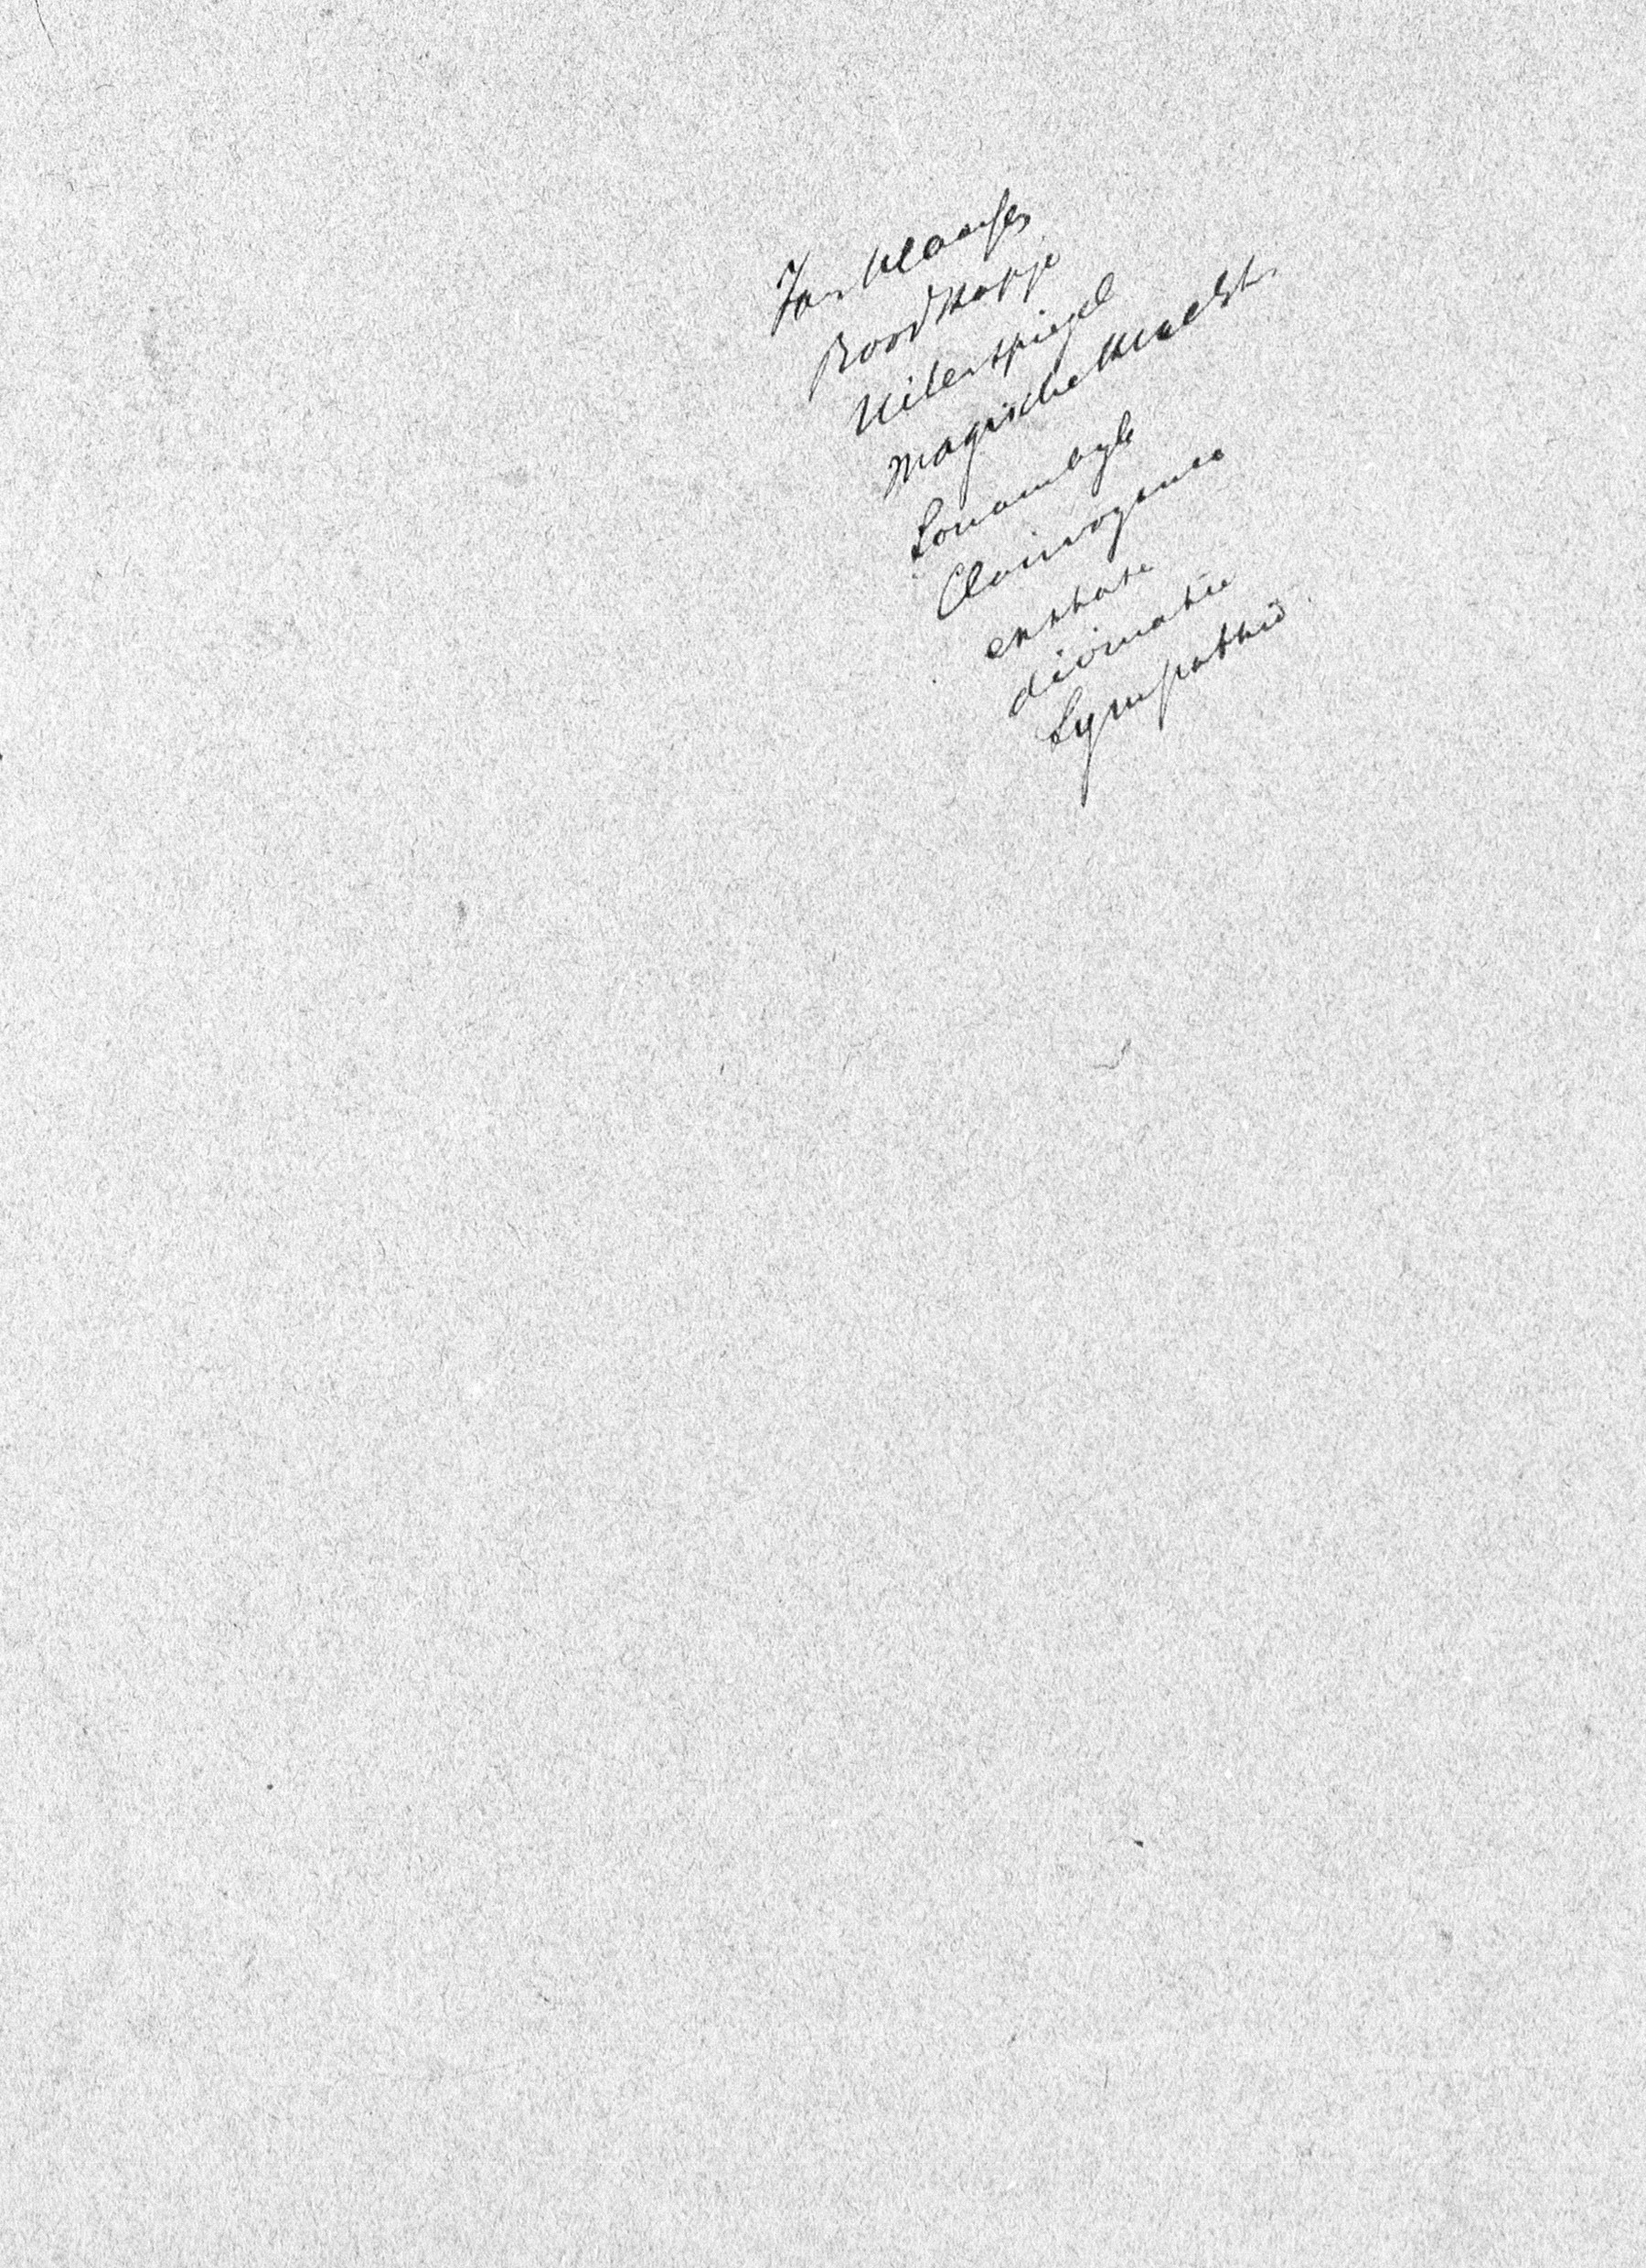 Jan Klaassen
Roodkapje
Uilenspiegel
magische kracht
Somambyle
Clairvoyance
extase
divinatie
Sympathie